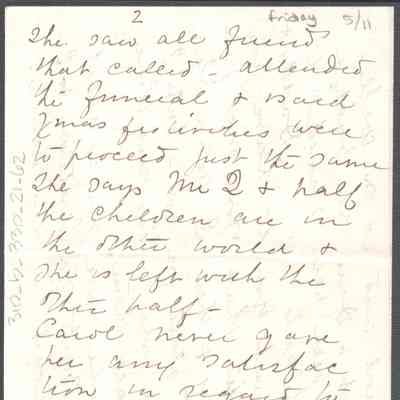 2
Friday 5/11
She saw all friends
that called - attended
the funeral & said
Xmas festivities were
to proceed just the same
She says Mr Q & half
the children are in
the other world &
she is left with the
other half -
Carol never gave
her any satisfac
tion in regard to